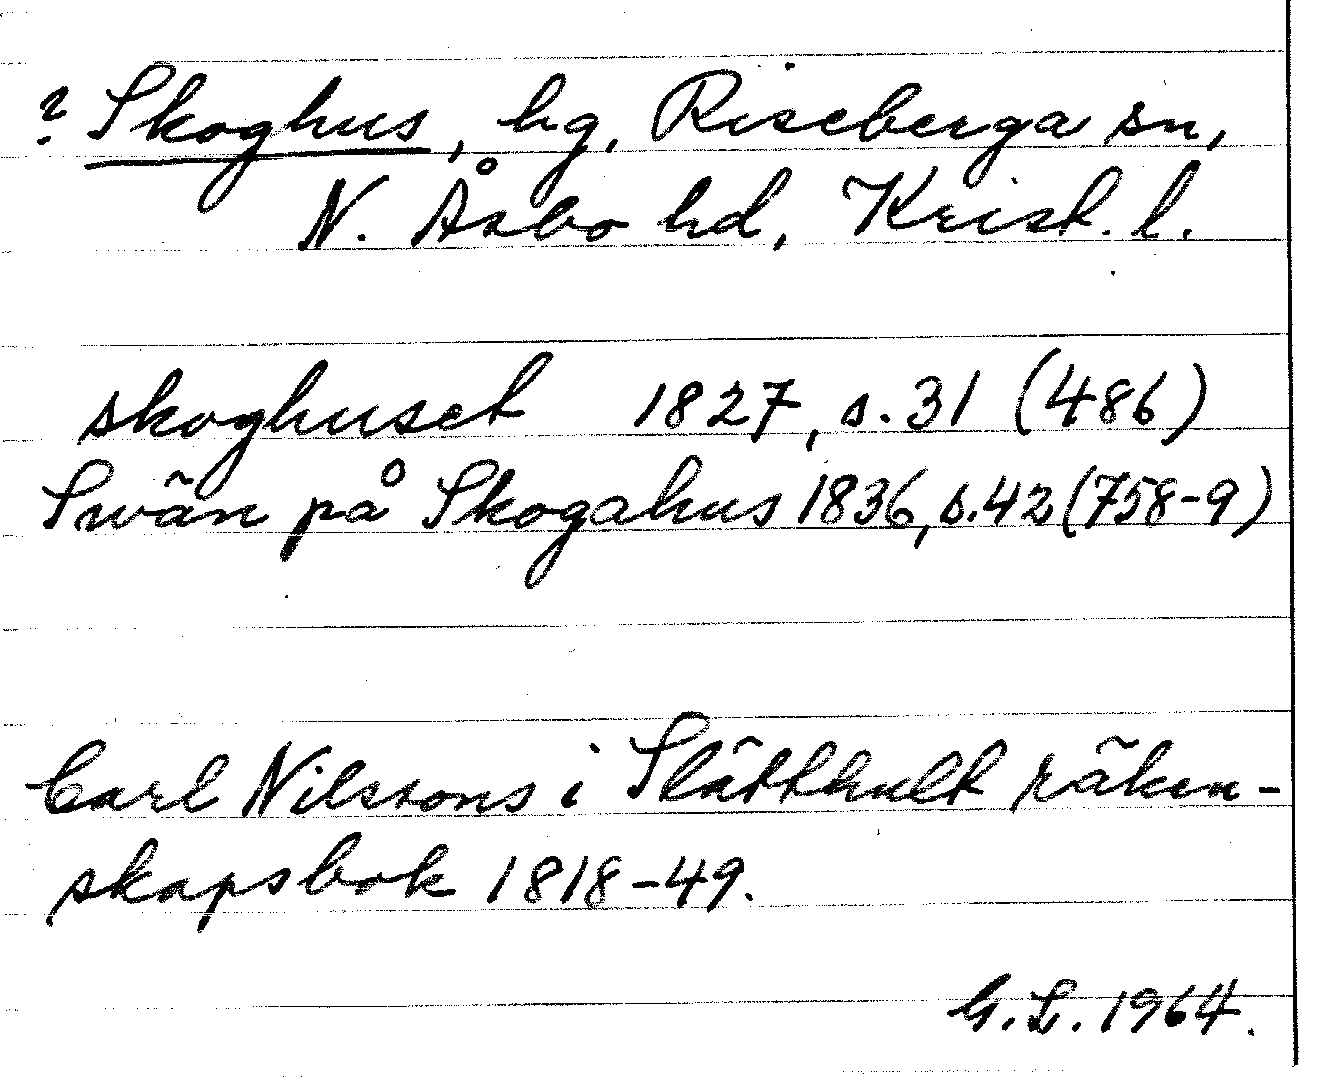 ? Skoghus, hg, Riseberga sn,
N. Åsbo hd, Krist. l.
skoghuset 1827, s. 31 (486)
Swän på Skogahus 1836, s. 42 (758-9)
Carl Nilssons i Slätthult räken-
skapsbok 1818-49.
G. L. 1964.